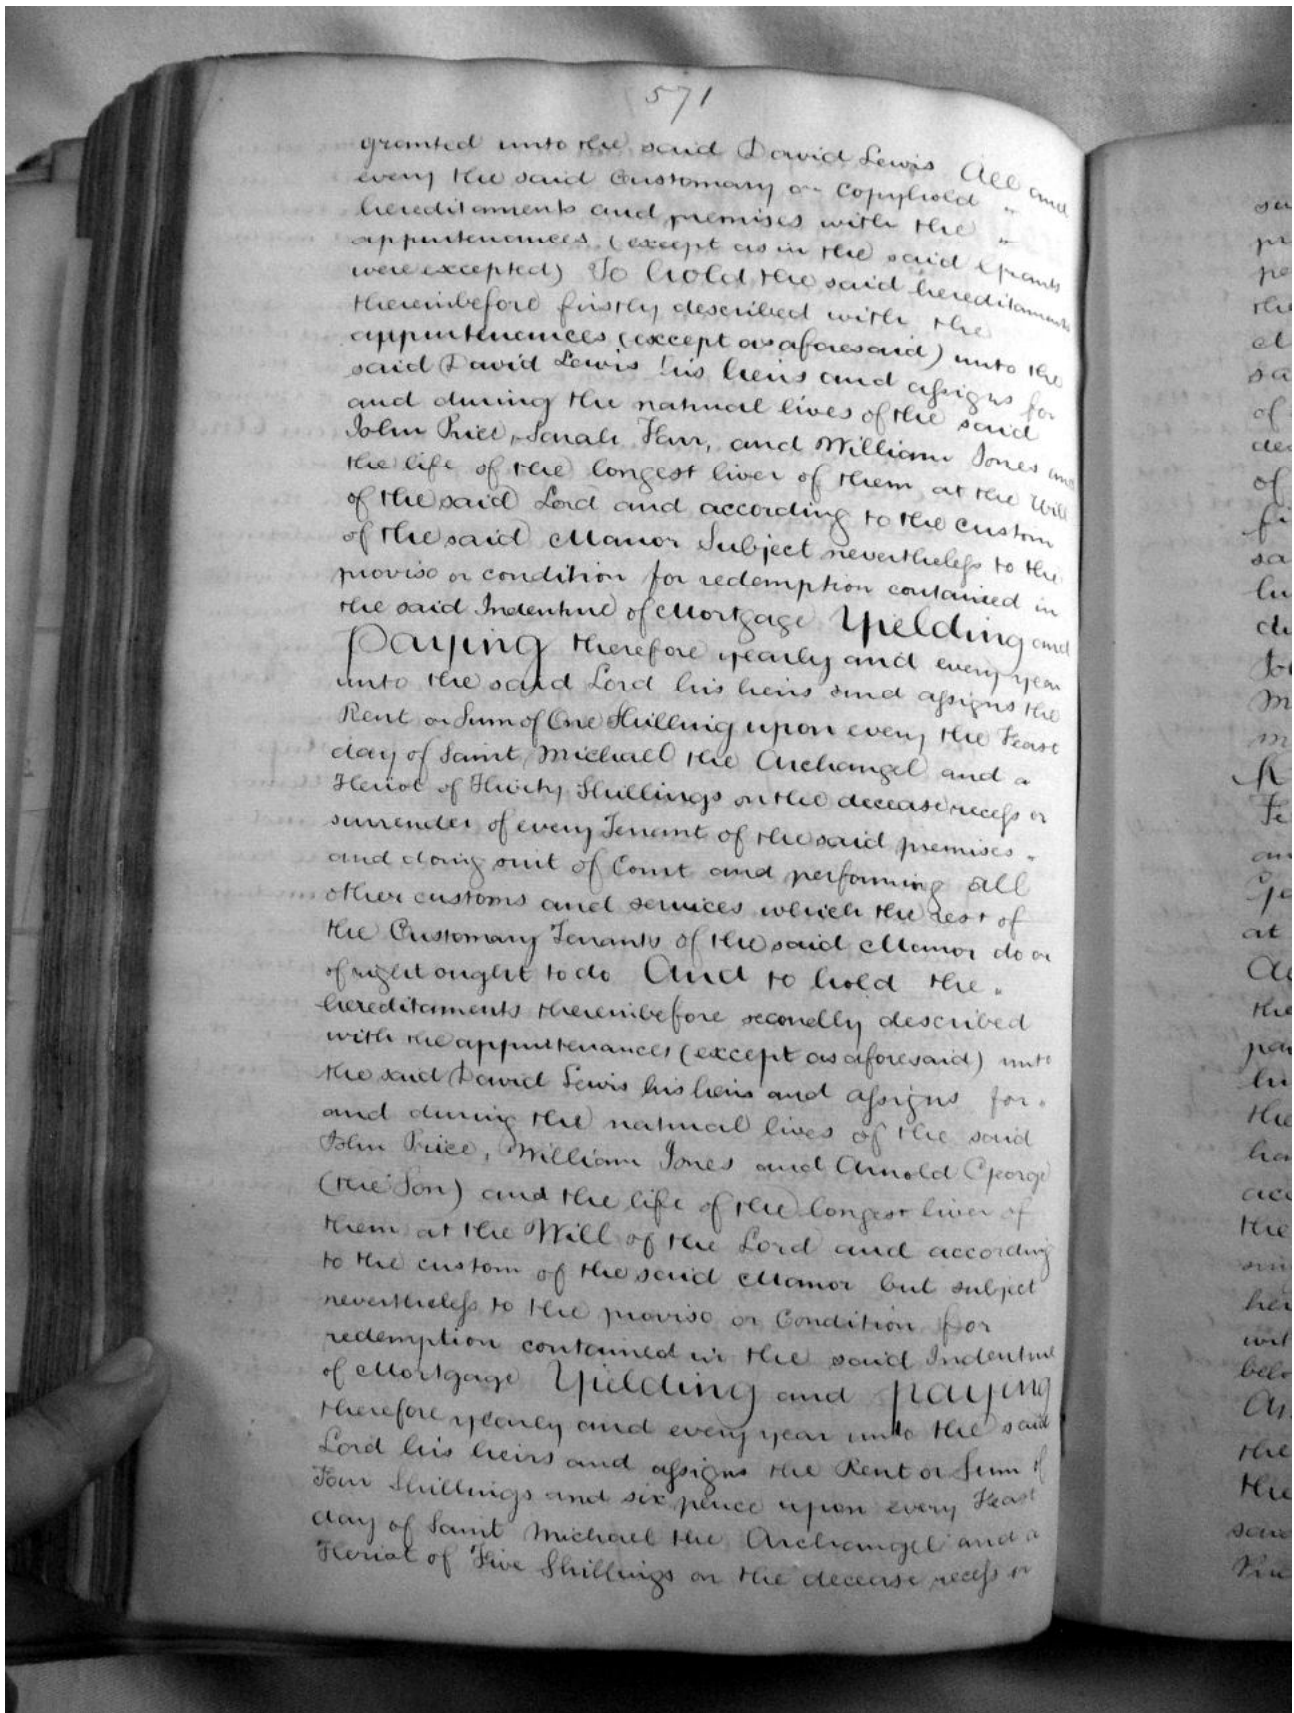 571
granted unto the said David Lewis All and
every the said Customary or Copyhold "
hereditaments and premises with the "
appurtenances (except as in the said Grants
were excepted) To hold the said hereditaments
thereinbefore firstly described with the
appurtenances (except as aforesaid) unto the
said David Lewis his heirs and assigns for
and during the natural lives of the said
John Price, Sarah Farr, and William Jones and
the life of the longest liver of them at the Will
of the said Lord and according to the custom
of the said Manor Subject nevertheless to the
proviso or condition for redemption contained in
the said Indenture of Mortgage Yielding and
Paying therefore yearly and every year
unto the said Lord his heirs and assigns the
Rent or Sum of One Shilling upon every the Feast
day of Saint Michael the Archangel and a
Heriot of Thirty Shillings on the decease recess or
surrender of every Tenant of the said premises "
and doing suit of Court and performing all
other customs and services which the rest of
the Customary Tenants of the said Manor do or
of right ought to do And to hold the "
hereditaments thereinbefore secondly described
with the appurtenances (except as aforesaid) unto
the said David Lewis his heirs and assigns for "
and during the natural lives of the said
John Price, William Jones and Arnold George
(the Son) and the life of the longest liver of
them at the Will of the Lord and according
to the custom of the said Manor but subject
nevertheless to the proviso or Condition for
redemption contained in the said Indenture
of Mortgage Yielding and paying
therefore yearly and every year unto the said
Lord his heirs and assigns the Rent or Sum of
Four Shillings and six pence upon every Feast
day of Saint Michael the Archangel and a
Heriot of Five Shillings on the decease recess or